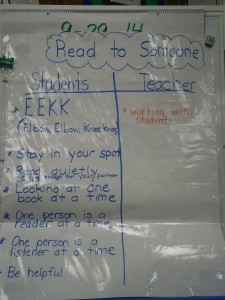 9-29-14
Read to Someone
Students
Teacher
* EEKK
(Elbow, Elbow, Knee Knee)
* Stay in your spot
* Read quietly
* Looking at one
book at a time
* One person is a
reader at a time
* One person is a
listener at a time
* Be helpful
* Working with
students